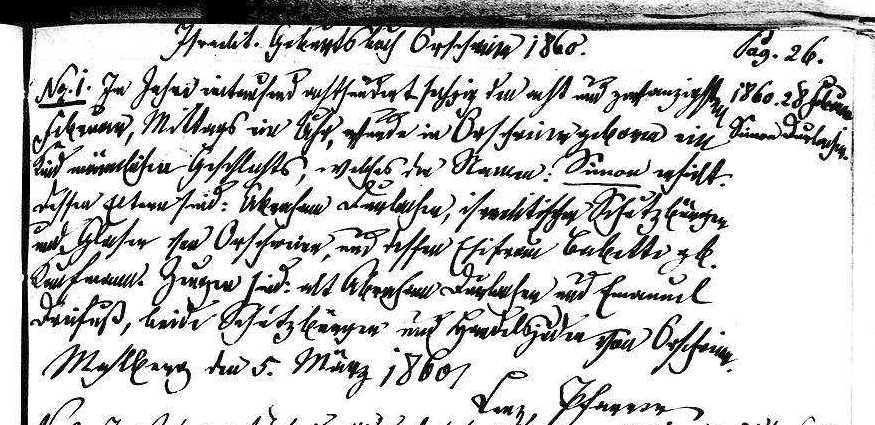 Israelit. Geburtsbuch Orschweier 1860. Pag. 26.
No. 1. Im Jahre eintausend achthundert sechzig den acht und zwanzigsten 1860. 28 Februar
Februar, Mittags ein Uhr, wurde in Orschweier geboren ein Simon Durlacher.
Kind männlichen Geschlechts, welches den Namen: Simon erhielt.
Dessen Eltern sind: Abraham Durlacher, israelitischer Schutzbürger
und Glaser von Orschweier, und dessen Ehefrau Babette geb.
Kaufmann. Zeugen sind: alt Abraham Durlacher und Emanuel
Dreifuß, beide Schutzbürger und Handelsjuden von Orschweier.
Mahlberg den 5. März 1860
Pfarrer